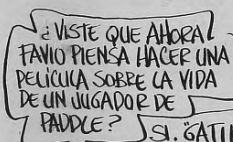 ¿VISTE QUE AHORA
FAVIO PIENSA HACER UNA
PELÍCULA SOBRE LA VIDA
DE UN JUGADOR DE
PADDLE?
SI. "GATI